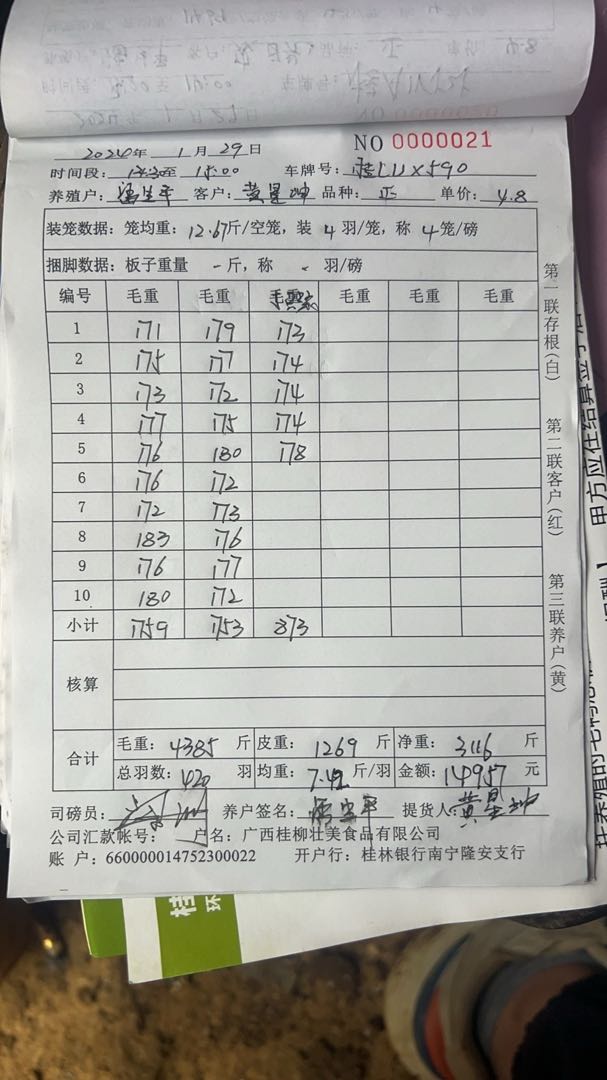 2024年 1月29日
NO 0000021
时间段: 14:30至 15:00 车牌号: 桂LUX590
养殖户: 客户: 黄星坤 品种: 正 单价: 4.8
装笼数据: 笼均重: 12.67斤/空笼, 装 4 羽/笼, 称 4 笼/磅
捆脚数据: 板子重量 - 斤, 称 - 羽/磅
编号 毛重 毛重 毛重 毛重 毛重 毛重
1 171 179 173
2 175 177 174
3 173 172 174
4 177 175 174
5 176 180 178
6 176 172
7 172 173
8 183 176
9 176 177
10 180 172
小计 1759 1753 873
核算
合计 毛重: 4385 斤 皮重: 1269 斤 净重: 3116 斤
总羽数: 420 羽 均重: 7.42 斤/羽 金额: 14957 元
司磅员: 养户签名: 提货人: 黄星坤
公司汇款帐号: 户名: 广西桂柳壮美食品有限公司
账 户: 660000014752300022 开户行: 桂林银行南宁隆安支行
第一联存根(白)
第二联客户(红)
第三联养户(黄)
甲方应住结算立于